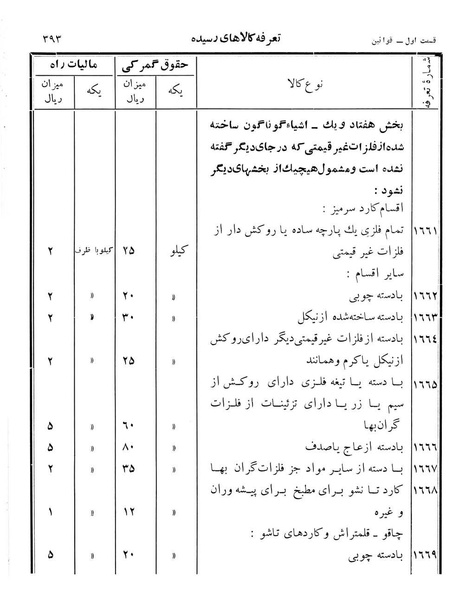 قسمت اول ــ قوانین
تعرفه کالاهای رسیده
۳۹۳
شمارهٔ تعرفه
نوع کالا
حقوق گمرکی
مالیات راه
یکه
میزان ریال
یکه
میزان ریال
بخش هفتاد و یك ــ اشیاء گوناگون ساخته
شده از فلزات غیر قیمتی که در جای دیگر گفته
نشده است و مشمول هیچیك از بخشهای دیگر
نشود :
اقسام کارد سرمیز :
۱۶۶۱ تمام فلزی یك پارچه ساده یا روکش دار از
فلزات غیر قیمتی کیلو ۲۵ کیلو با ظرف ۲
سایر اقسام :
۱۶۶۲ بادسته چوبی » ۲۰ » ۲
۱۶۶۳ بادسته ساخته شده از نیکل » ۳۰ » ۲
۱۶۶۴ بادسته از فلزات غیرقیمتی دیگر دارای روکش
از نیکل یا کرم و همانند » ۲۵ » ۲
۱۶۶۵ با دسته یا تیغه فلزی دارای روکش از
سیم یا زر یا دارای تزئینات از فلزات
گران بها » ۶۰ » ۵
۱۶۶۶ بادسته از عاج یا صدف » ۸۰ » ۵
۱۶۶۷ با دسته از سایر مواد جز فلزات گران بها » ۳۵ » ۲
۱۶۶۸ کارد تا نشو برای مطبخ برای پیشه وران
و غیره » ۱۲ » ۱
چاقو ــ قلمتراش و کاردهای تاشو :
۱۶۶۹ بادسته چوبی » ۲۰ » ۵